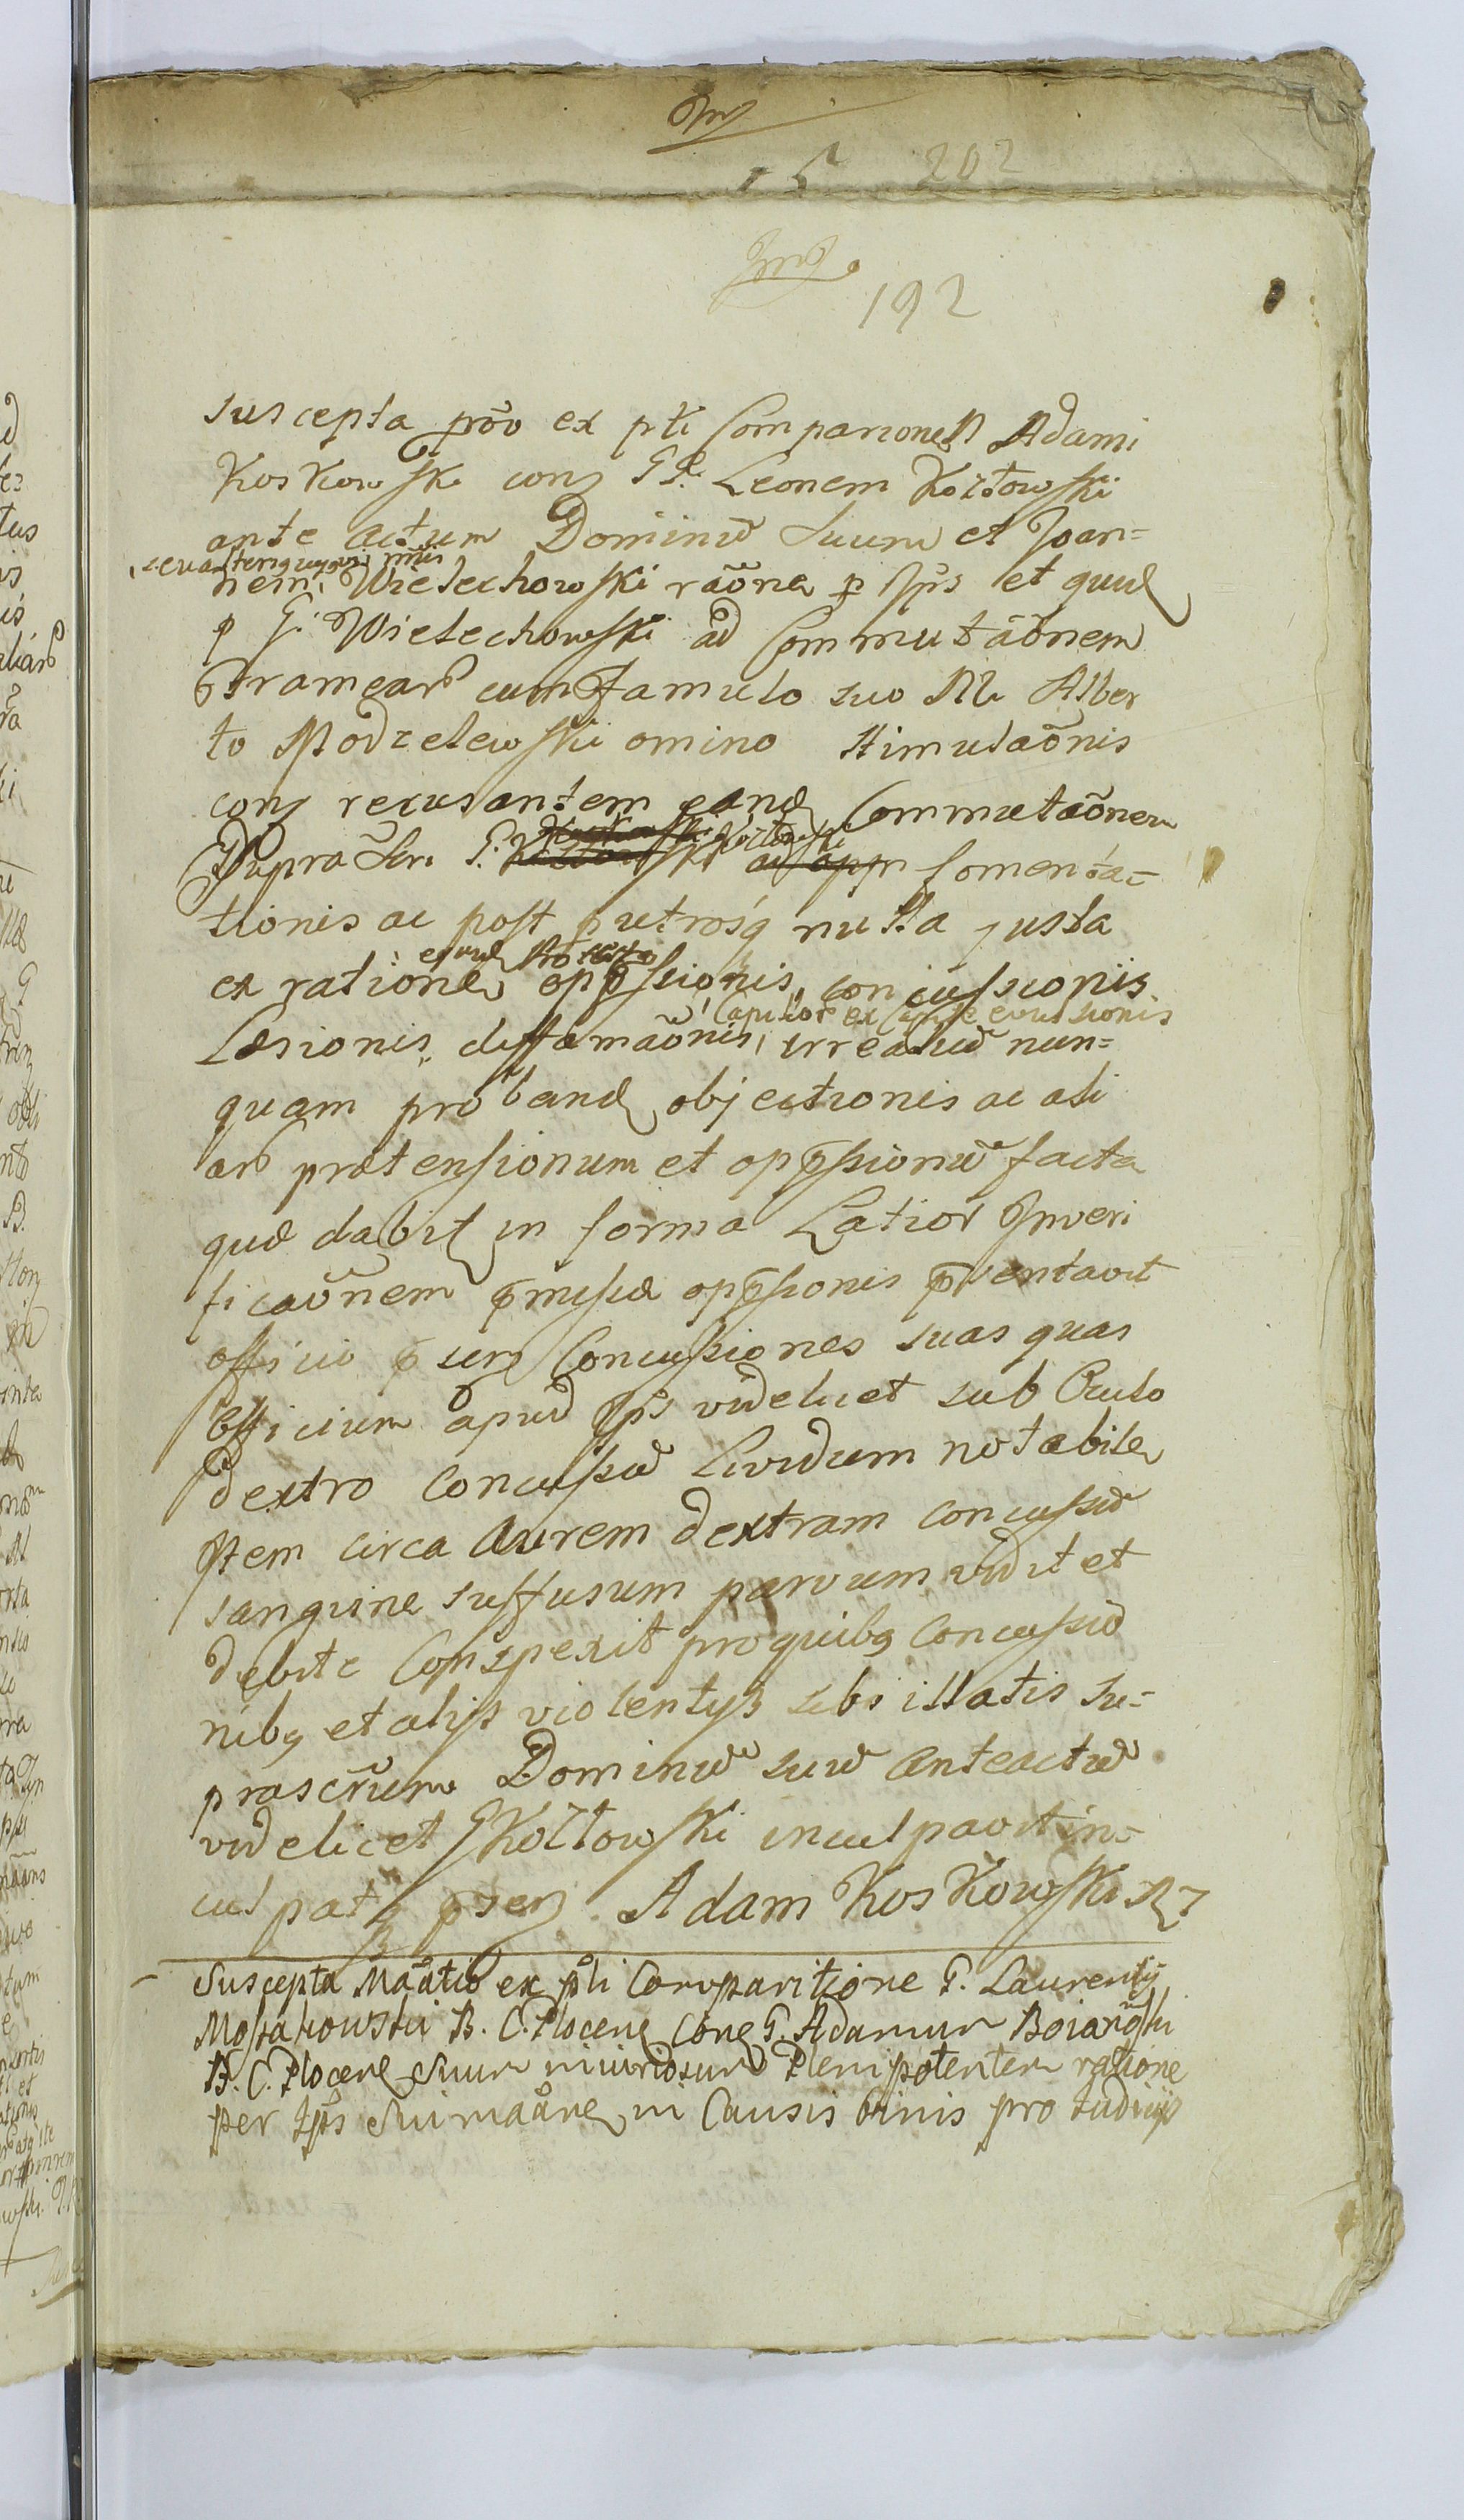 15 202
192
suscepta põo ex pti Comparione N Adami
Koskowski conz GG. Leonem Kozłowski
ante actum Dominū suum et Joan=
nem Wielechowski raõne p Ips et quid
p G. Wielechowski ad Commutaõnem
cum famulo suo N. Alber
to Modzelewski omino stimulaõnis
conz recusantem eand Commutaõnem
Supra Scri G. Kozłowski fomenta=
tionis ac post putrosq nulla justa
ex ratione oppssionis, concussionis
Laesionis, diffamaõnis, irreatiū nun=
quam proband objectionis ac ali
ar praetensionum et oppssionū facta
quae dabit in forma Latiori In veri
ficaõnem pmissae oppssionis psentavit
officio psenz Concussiones suas quas
Officium apud Ips videlicet sub Oculo
dextro Concussū Lividum notabile
Item circa Aurem dextram concussū
sanguine suffusum parvum vidit et
debite Conspexit pro quibq Concussio
nibq et alijs violentijs sibi illatis su=
prascrum Dominū suū Anteactū
videlicet G Kozłowski inculpavit in=
culpatq psenz Adam Koskowski
Suscepta Maãtio ex pti Comparitione G. Laurentij
Mostakowski B. C. Plocen Conz G. Adamum Boianowski
B. C. Plocen Suum iniuriosum Plenipotentem ratione
per Ips Sui in Causis binis pro